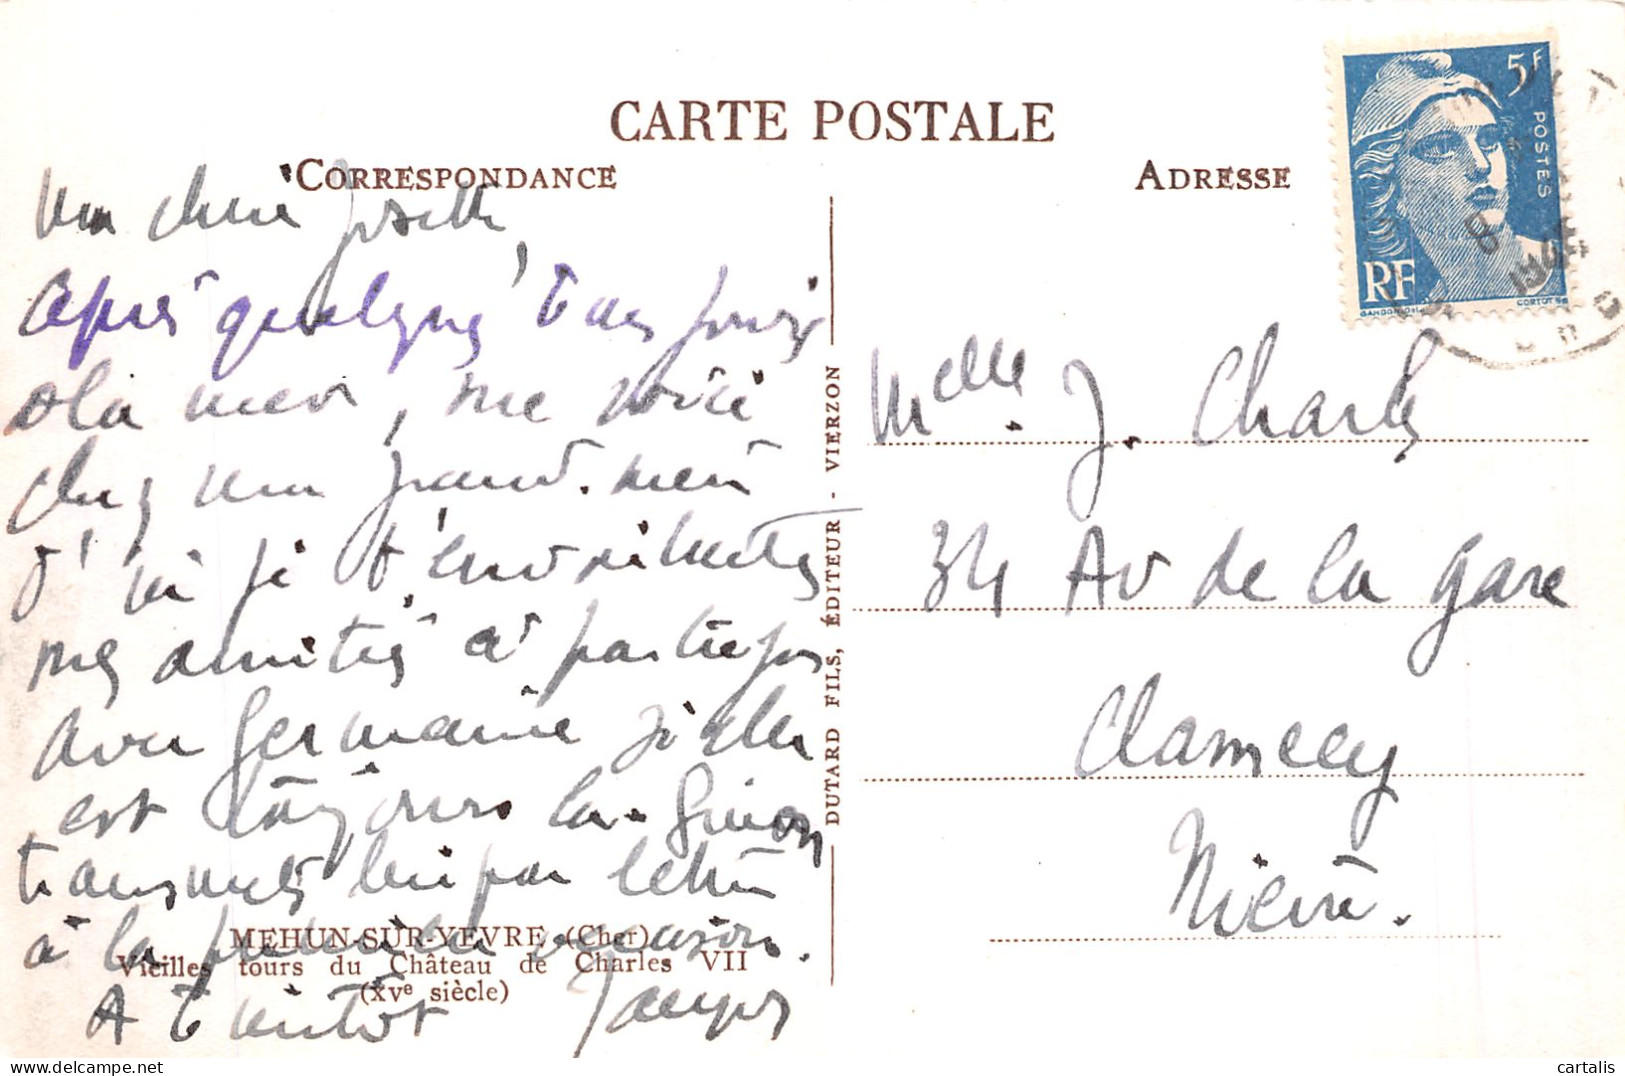 CARTE POSTALE
CORRESPONDANCE
ADRESSE
5F
POSTES
RF
GANDON DEL
CORTOT SC
Ma chère Josette,
après quelques beaux jours
à la mer, me voici
chez ma grand-mère
d'où je t'envoie toutes
mes amitiés à partager
avec Germaine si elle
est toujours là. Sinon
transmets lui par lettre
à la première occasion.
A bientôt Jacques
MEHUN-SUR-YEVRE (Cher)
Vieilles tours du Château de Charles VII
(XVe siècle)
DUTARD FILS, ÉDITEUR - VIERZON
Melle. J. Charles
34 Av de la gare
Clamecy
Nièvre.
cartalis